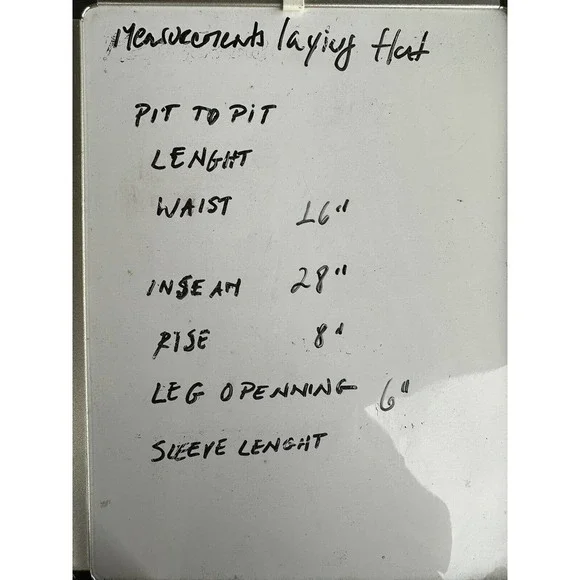 Measurements laying flat
PIT TO PIT
LENGHT
WAIST 16"
INSEAM 28"
RISE 8"
LEG OPENNING 6"
SLEEVE LENGHT